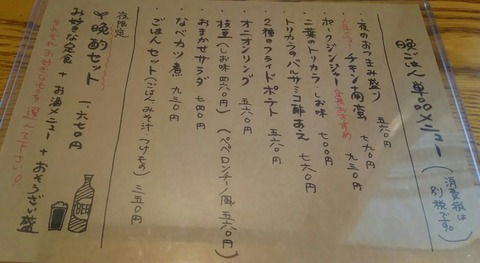 晩ごはん 単品メニュー (消費税は別税です。)
・夜のおつまみ盛り 五六〇円
チキン南蛮 九三〇円
・ポークジンジャー 七八〇円
・二葉のトリカラ・しお味 七〇〇円
・トリカラのバルサミコ酢あえ 七六〇円
・2種のフライドポテト 五六〇円
・オニオンリング 五六〇円
・枝豆(しお味 四六〇円)(ペペロンチーノ風 五六〇円)
・おまかせサラダ 七〇〇円
・なべカツ煮 九三〇円
・ごはんセット(ごはん・みそ汁・つけもの) 三五〇円
夜限定
晩酌セット 一、六七〇円
お好きな定食 + お酒メニュー + おそうざい盛